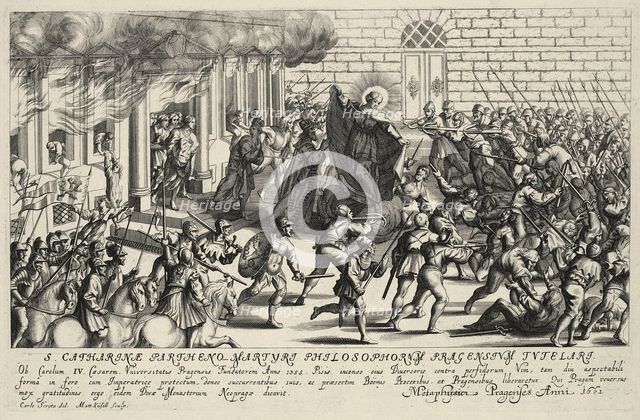 heritage
Heritage
Heritage
Heritage
Heritage
S. CATHARINÆ PARTHENO-MARTYRI PHILOSOPHORVM PRAGENSIVM TVTELARI.
Ob Carolum IV. Cæsarem Universitatis Pragensis Fundatorem Anno 1355. Pisis incenso ejus Diversorio contra perfidorum Vim, tam diu aspectabili
forma in foro cum Imperatrice protectum, donec succurrentibus suis, ac præsertim Boëmis Proceribus, et Pragensibus, liberaretur Qui Pragam reversus
mox gratitudinis ergo eidem Divæ Monasterium Neopragæ dicavit. Metaphysici Pragenses Anni 1661
Carlo Screta del. Mat. Küsell sculp.